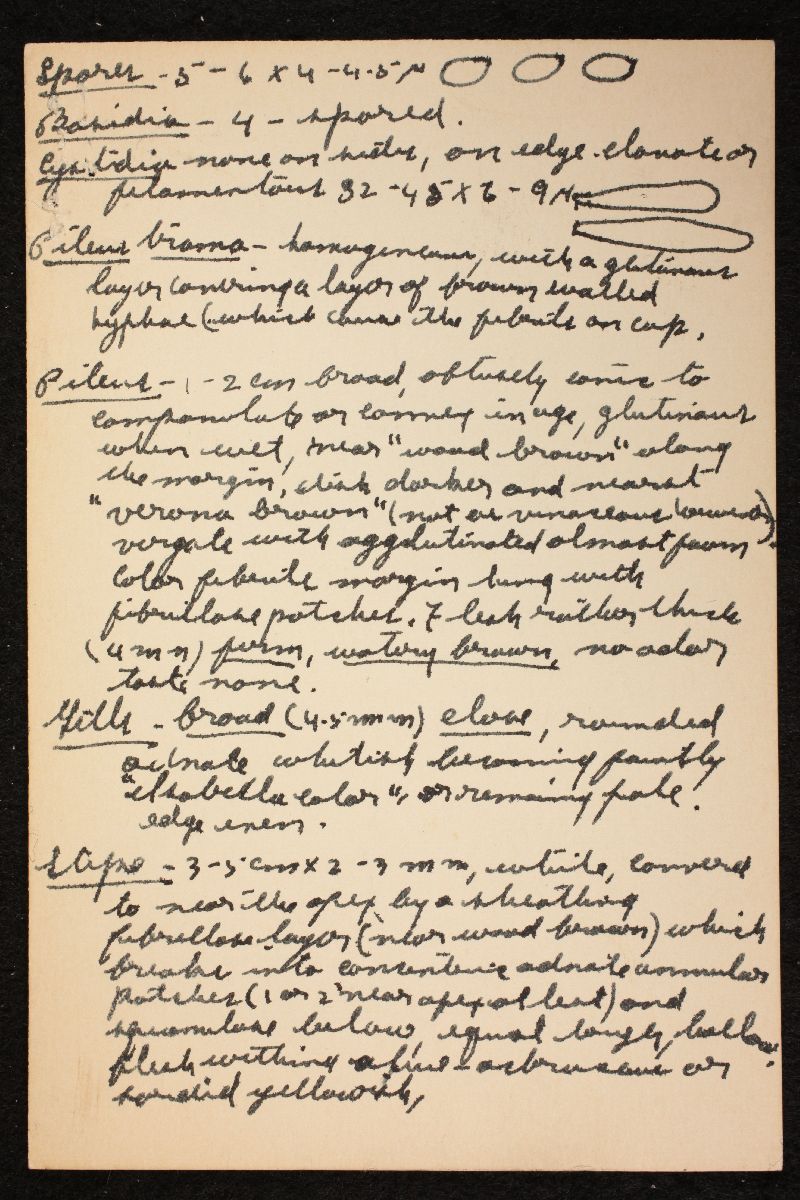 Spores - 5 - 6 x 4 - 4.5 µ
Basidia - 4 - spored.
Cystidia none on sides, on edge clavate or
filamentous 32 - 45 x 6 - 9 µ
Pileus trama - homogeneous, with a glutinous
layer covering a layer of brown walled
hyphae (which cause the fibrils on cap.
Pileus - 1 - 2 cm broad, obtusely conic to
campanulate or convex in age, glutinous
when wet, near "wood brown" along
the margin, disk darker and nearest
"verona brown" (not as vinaceous however)
virgate with agglutinated almost fawn
color fibrils margin hung with
fibrillose patches. Flesh rather thick
(4 mm) firm, watery brown, no odor
taste none.
Gills - broad (4.5 mm) close, rounded
adnate whitish becoming faintly
"isabella color", or remaining pale.
edge even.
Stipe - 3-5 cm x 2 - 3 mm, white, covered
to near the apex by a sheathing
fibrillose layer (near wood brown) which
breaks into concentric adnate annular
patches (1 or 2 near apex at least) and
squamulose below, equal tough, hollow
flesh within a fine - or
sordid yellowish,